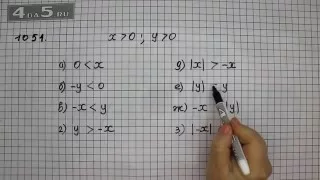 4A5.RU
1051.
x > 0 ; y > 0
а) 0 < x
б) -y < 0
в) -x < y
г) y > -x
д) |x| > -x
е) |y| y
ж) -x |y|
з) |-x|